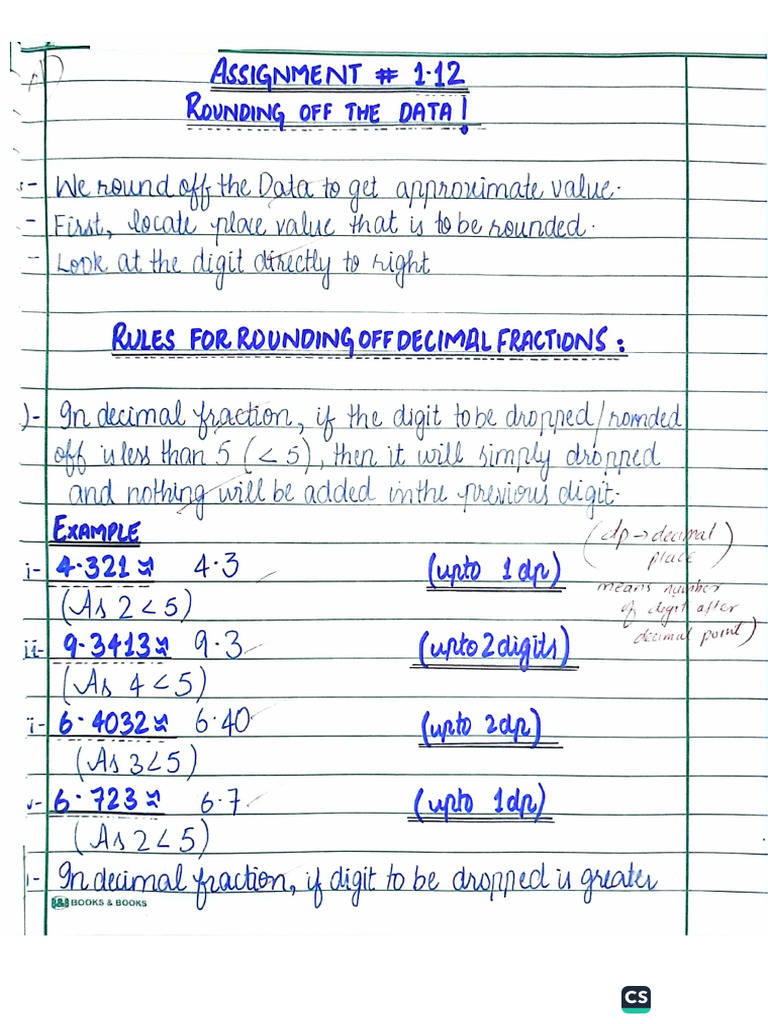 ASSIGNMENT # 1.12
ROUNDING OFF THE DATA!
- We round off the Data to get approximate value.
- First, locate place value that is to be rounded.
- Look at the digit directly to right
RULES FOR ROUNDING OFF DECIMAL FRACTIONS:
)- In decimal fraction, if the digit to be dropped/rounded
off is less than 5 (< 5), then it will simply dropped
and nothing will be added in the previous digit.
EXAMPLE
(dp → decimal place means number of digit after decimal point)
i- 4.321 ≈ 4.3 (upto 1dp)
(As 2 < 5)
ii- 9.3413 ≈ 9.3 (upto 2 digits)
(As 4 < 5)
i- 6.4032 ≈ 6.40 (upto 2dp)
(As 3 < 5)
v- 6.723 ≈ 6.7 (upto 1dp)
(As 2 < 5)
- In decimal fraction, if digit to be dropped is greater
B&B BOOKS & BOOKS
CS